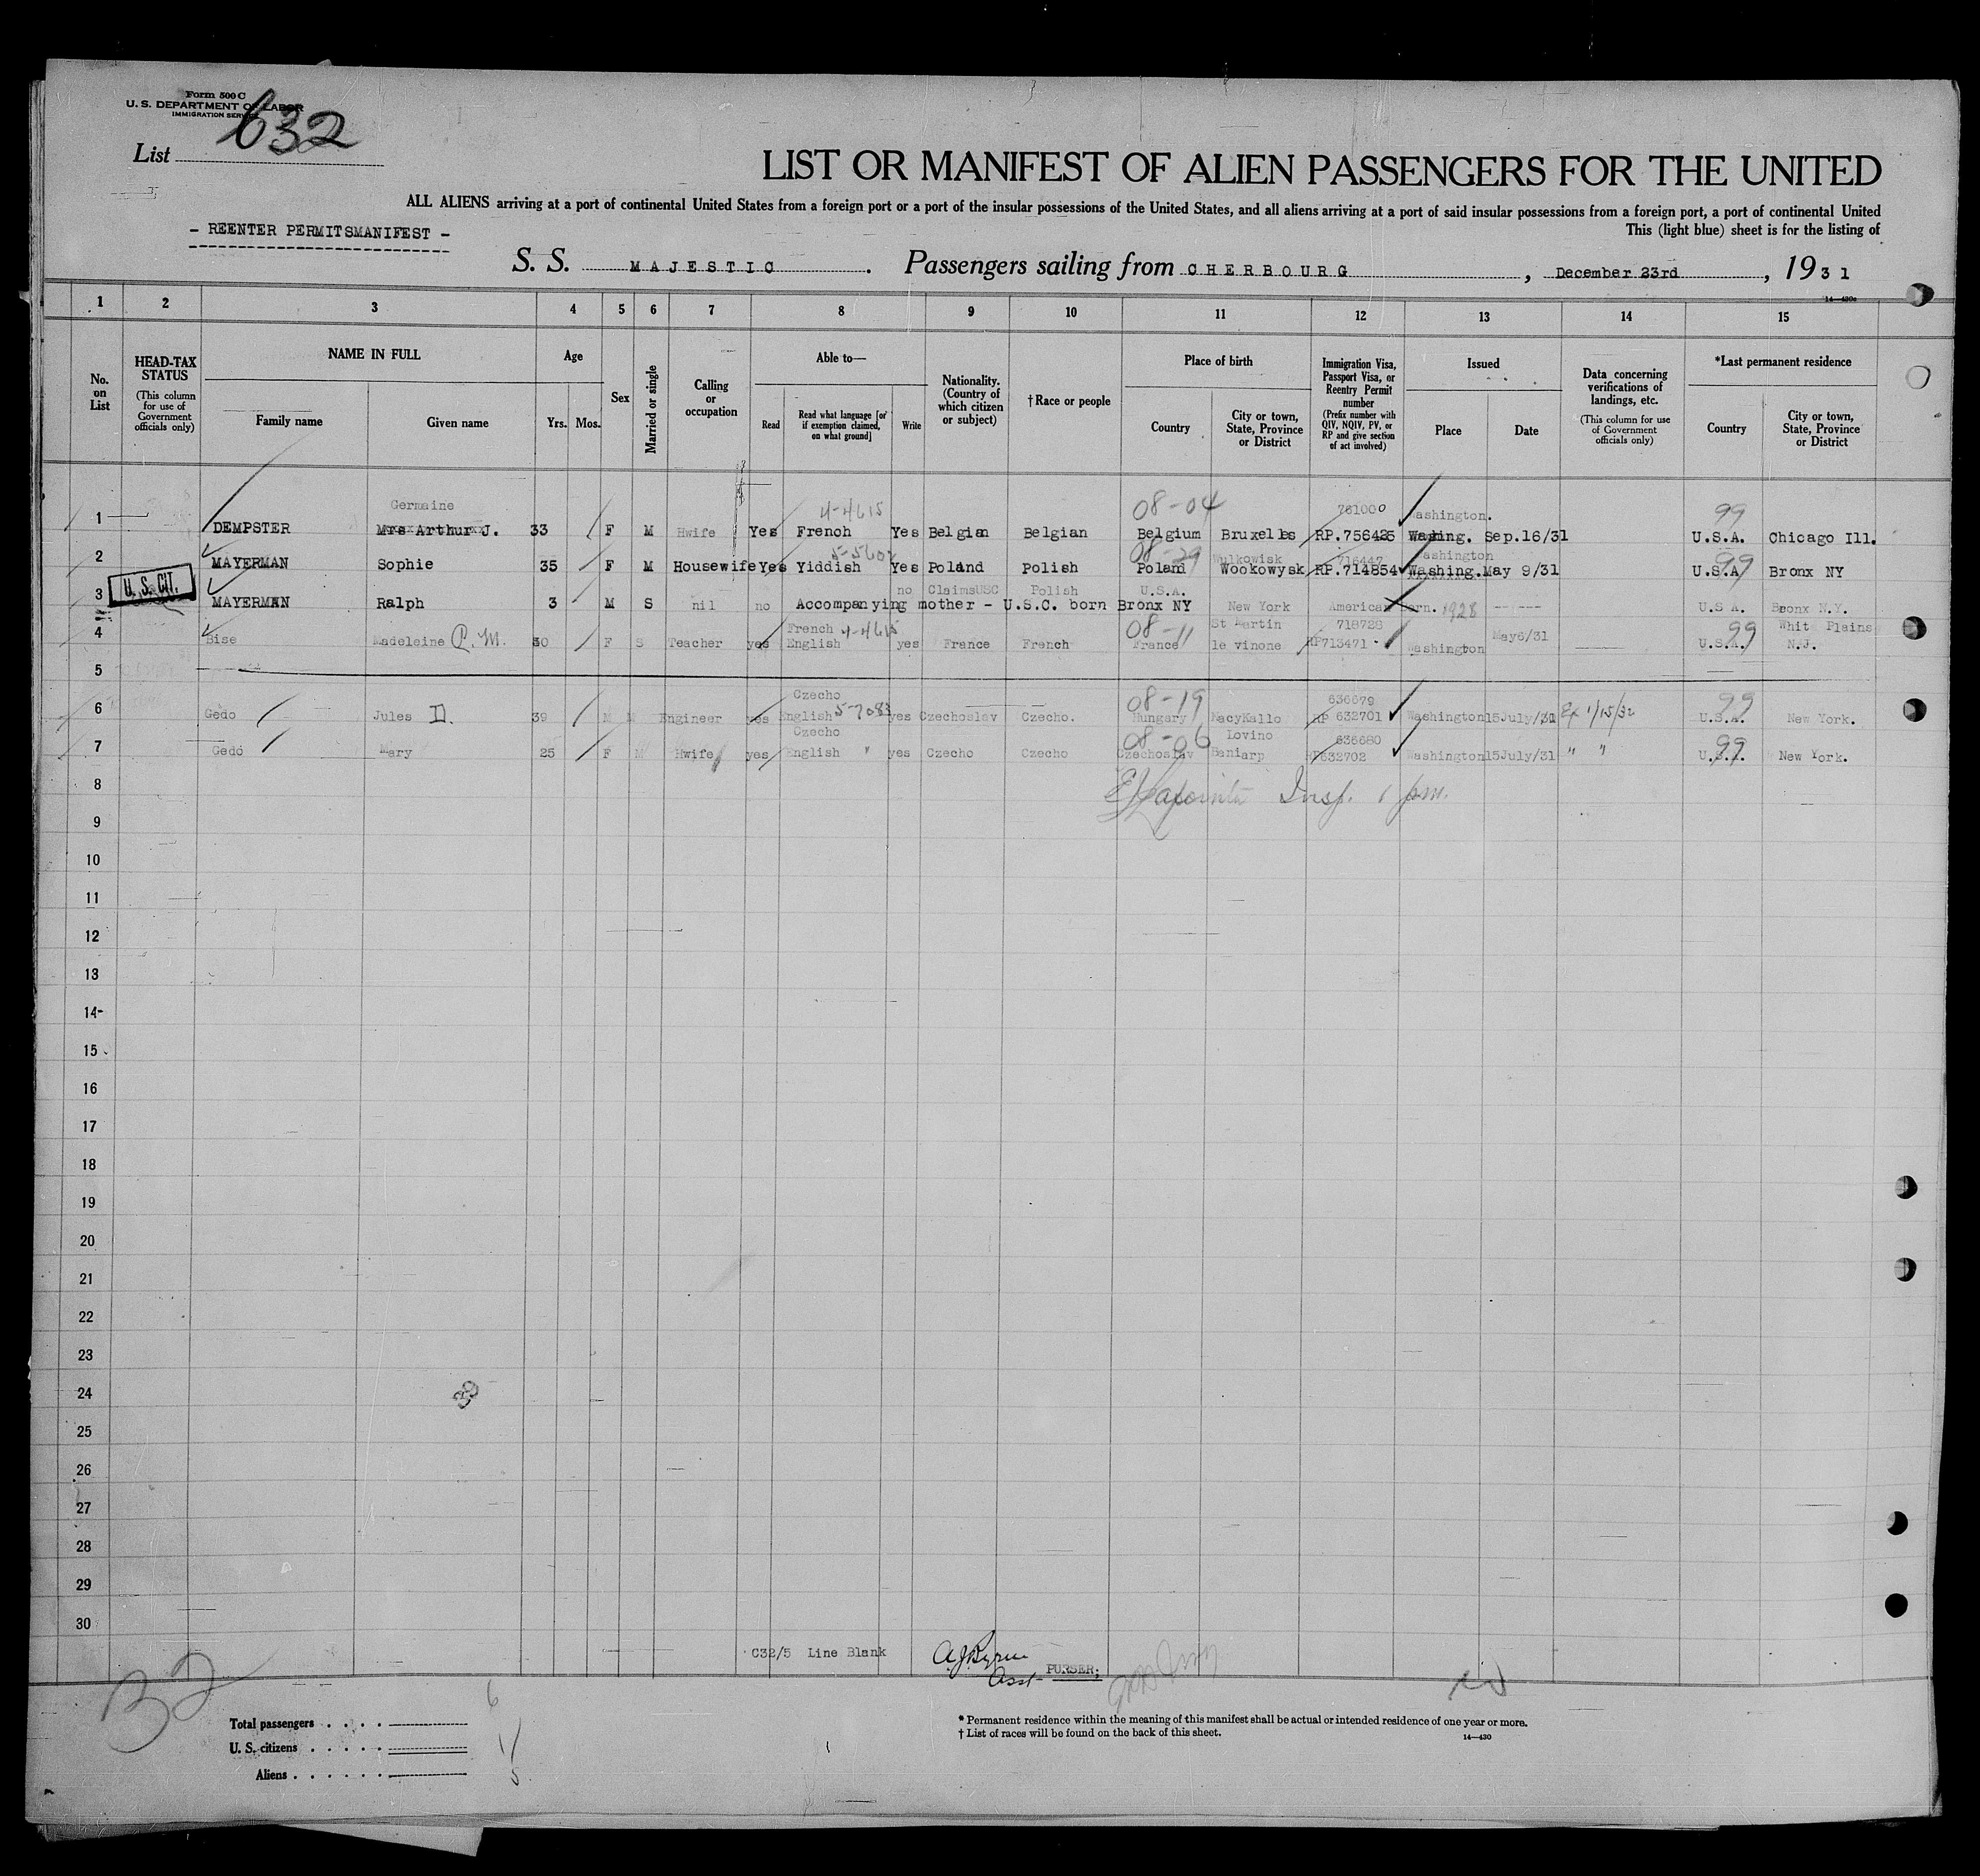 Form 500 C
U. S. DEPARTMENT OF LABOR
IMMIGRATION SERVICE
List 632
LIST OR MANIFEST OF ALIEN PASSENGERS FOR THE UNITED
ALL ALIENS arriving at a port of continental United States from a foreign port or a port of the insular possessions of the United States, and all aliens arriving at a port of said insular possessions from a foreign port, a port of continental United
This (light blue) sheet is for the listing of
- REENTER PERMITSMANIFEST -
S. S. MAJESTIC. Passengers sailing from CHERBOURG, December 23rd, 1931
14—430c
1 2 3 4 5 6 7 8 9 10 11 12 13 14 15
No. on List
HEAD-TAX STATUS
(This column for use of Government officials only)
NAME IN FULL
Family name
Given name
Age
Yrs. Mos.
Sex
Married or single
Calling or occupation
Able to—
Read
Read what language [or if exemption claimed, on what ground]
Write
Nationality. (Country of which citizen or subject)
†Race or people
Place of birth
Country
City or town, State, Province or District
Immigration Visa, Passport Visa, or Reentry Permit number
(Prefix number with QIV, NQIV, PV, or RP and give section of act involved)
Issued
Place
Date
Data concerning verifications of landings, etc.
(This column for use of Government officials only)
*Last permanent residence
Country
City or town, State, Province or District
Germaine 4-4615 08-04 761000 Washington. 99
1 DEMPSTER Mrs Arthur J. 33 F M Hwife Yes French Yes Belgian Belgian Belgium Bruxelles RP.756425 Washing. Sep.16/31 U.S.A. Chicago Ill.
5-5602 08-29 Wulkowisk 716447 Washington 99
2 MAYERMAN Sophie 35 F M Housewife Yes Yiddish Yes Poland Polish Poland Wookowysk RP.714854 Washing. May 9/31 U.S.A Bronx NY
U. S. CIT.
no ClaimsUSC Polish U.S.A.
3 MAYERMAN Ralph 3 M S nil no Accompanying mother - U.S.C. born Bronx NY New York American Born. 1928 U.S A. Bronx N.Y.
French 4-4615 08-11 St Martin 718728 99 Whit Plains
4 Bise Madeleine P. M. 30 F S Teacher yes English yes France French France le vinone RP713471 Washington May6/31 U.S.A. N.J.
5
Czecho 5-7083 08-19 636679 99
6 Gedo Jules D. 39 M M Engineer yes English yes Czechoslav Czecho. Hungary NacyKallo RP 632701 Washington 15July/31 Ex 1/15/32 U.S.A. New York.
Czecho 08-06 Lovino 636680 99
7 Gedo Mary 25 F M Hwife yes English " yes Czecho Czecho Czechoslav Baniarp RP632702 Washington 15July/31 " " U.S.A. New York.
8 Insp.
9
10
11
12
13
14
15
16
17
18
19
20
21
22
23
24
25
26
27
28
29
30
C32/5 Line Blank
A.J. Byrne
Asst- PURSER;
32
Total passengers . . . . 6
U. S. citizens . . . . . 1
Aliens . . . . . . 5
* Permanent residence within the meaning of this manifest shall be actual or intended residence of one year or more.
† List of races will be found on the back of this sheet.
14—430